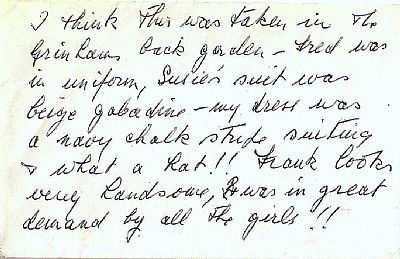 I think this was taken in the
Grinhams back garden – Fred was
in uniform, Susie's suit was
beige gabadine – my dress was
a navy chalk stripe suiting
& what a hat!! Frank looks
very handsome, & was in great
demand by all the girls!!